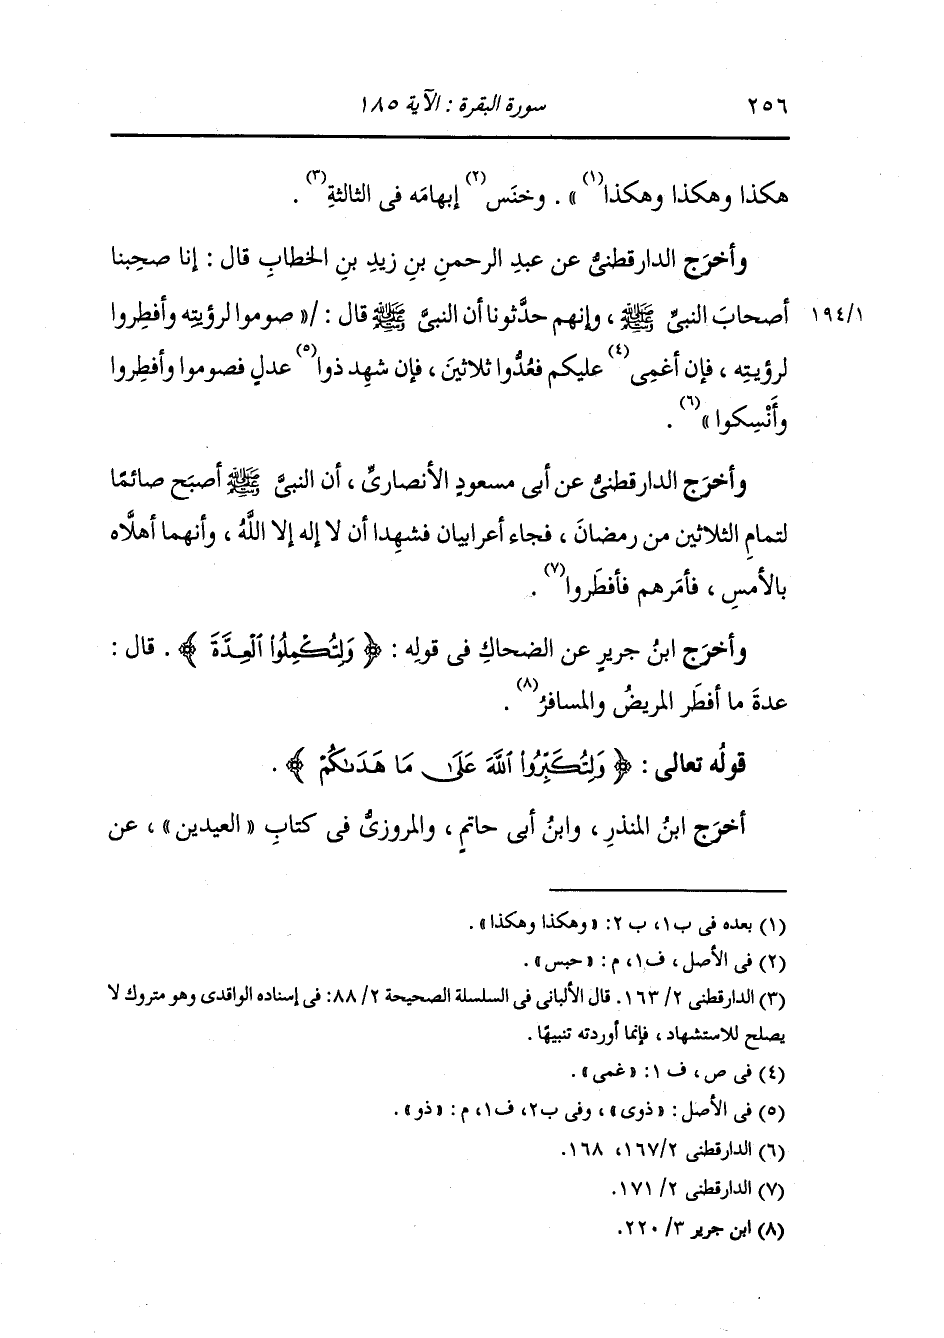 ٢٥٦ سورة البقرة : الآية ١٨٥
هكذا وهكذا وهكذا(١)» . وخنَس(٢) إبهامَه فى الثالثةِ(٣) .
وأخرَج الدارقطنىُّ عن عبدِ الرحمنِ بنِ زيدِ بنِ الخطابِ قال : إنا صحِبنا
١٩٤/١ أصحابَ النبىِّ ﷺ ، وإنهم حدَّثونا أن النبىَّ ﷺ قال : /« صوموا لرؤيتِه وأفطِروا
لرؤيتِه ، فإن أغمِى(٤) عليكم فعُدُّوا ثلاثينَ ، فإن شهِد ذوا(٥) عدلٍ فصوموا وأفطِروا
وأَنْسِكوا»(٦) .
وأخرَج الدارقطنىُّ عن أبى مسعودٍ الأنصارىِّ ، أن النبىَّ ﷺ أصبَح صائمًا
لتمامِ الثلاثين من رمضانَ ، فجاء أعرابيان فشهِدا أن لا إله إلا اللَّهُ ، وأنهما أهلَّاه
بالأمسِ ، فأمَرهم فأفطَروا(٧) .
وأخرَج ابنُ جريرٍ عن الضحاكِ فى قولِه : ﴿ وَلِتُكْمِلُوا۟ ٱلْعِدَّةَ ﴾ . قال :
عدةَ ما أفطَر المريضُ والمسافرُ(٨) .
قولُه تعالى : ﴿ وَلِتُكَبِّرُوا۟ ٱللَّهَ عَلَىٰ مَا هَدَىٰكُمْ ﴾ .
أخرَج ابنُ المنذرِ ، وابنُ أبى حاتمٍ ، والمروزىُّ فى كتابِ « العيدين» ، عن
(١) بعده فى ب١، ب ٢: «وهكذا وهكذا» .
(٢) فى الأصل ، ف١، م : «حبس» .
(٣) الدارقطنى ٢/ ١٦٣. قال الألبانى فى السلسلة الصحيحة ٢/ ٨٨: فى إسناده الواقدى وهو متروك لا
يصلح للاستشهاد ، فإنما أوردته تنبيهًا .
(٤) فى ص ، ف ١: «غمى» .
(٥) فى الأصل : «ذوى» ، وفى ب٢، ف١، م : «ذو» .
(٦) الدارقطنى ١٦٧/٢، ١٦٨.
(٧) الدارقطنى ٢/ ١٧١.
(٨) ابن جرير ٣/ ٢٢٠.